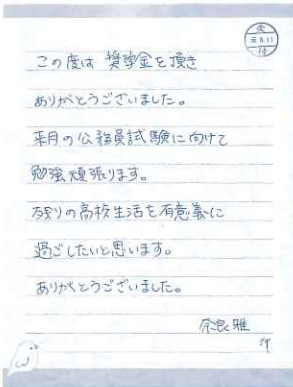 元.8.11
この度は 奨学金を頂き
ありがとうございました。
来月の公務員試験に向けて
勉強頑張ります。
残りの高校生活を有意義に
過ごしたいと思います。
ありがとうございました。
奈良 雅